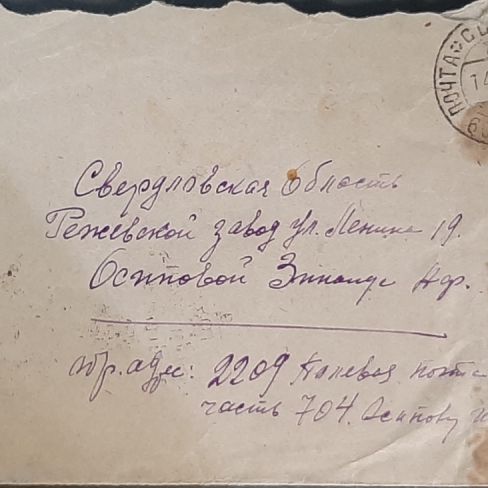 ПОЧТА
14
Свердловская область
Режевской завод ул. Ленина 19.
Осиповой Зинаиде
обр. адрес: 2209 Полевая почта
часть 704. Осипову